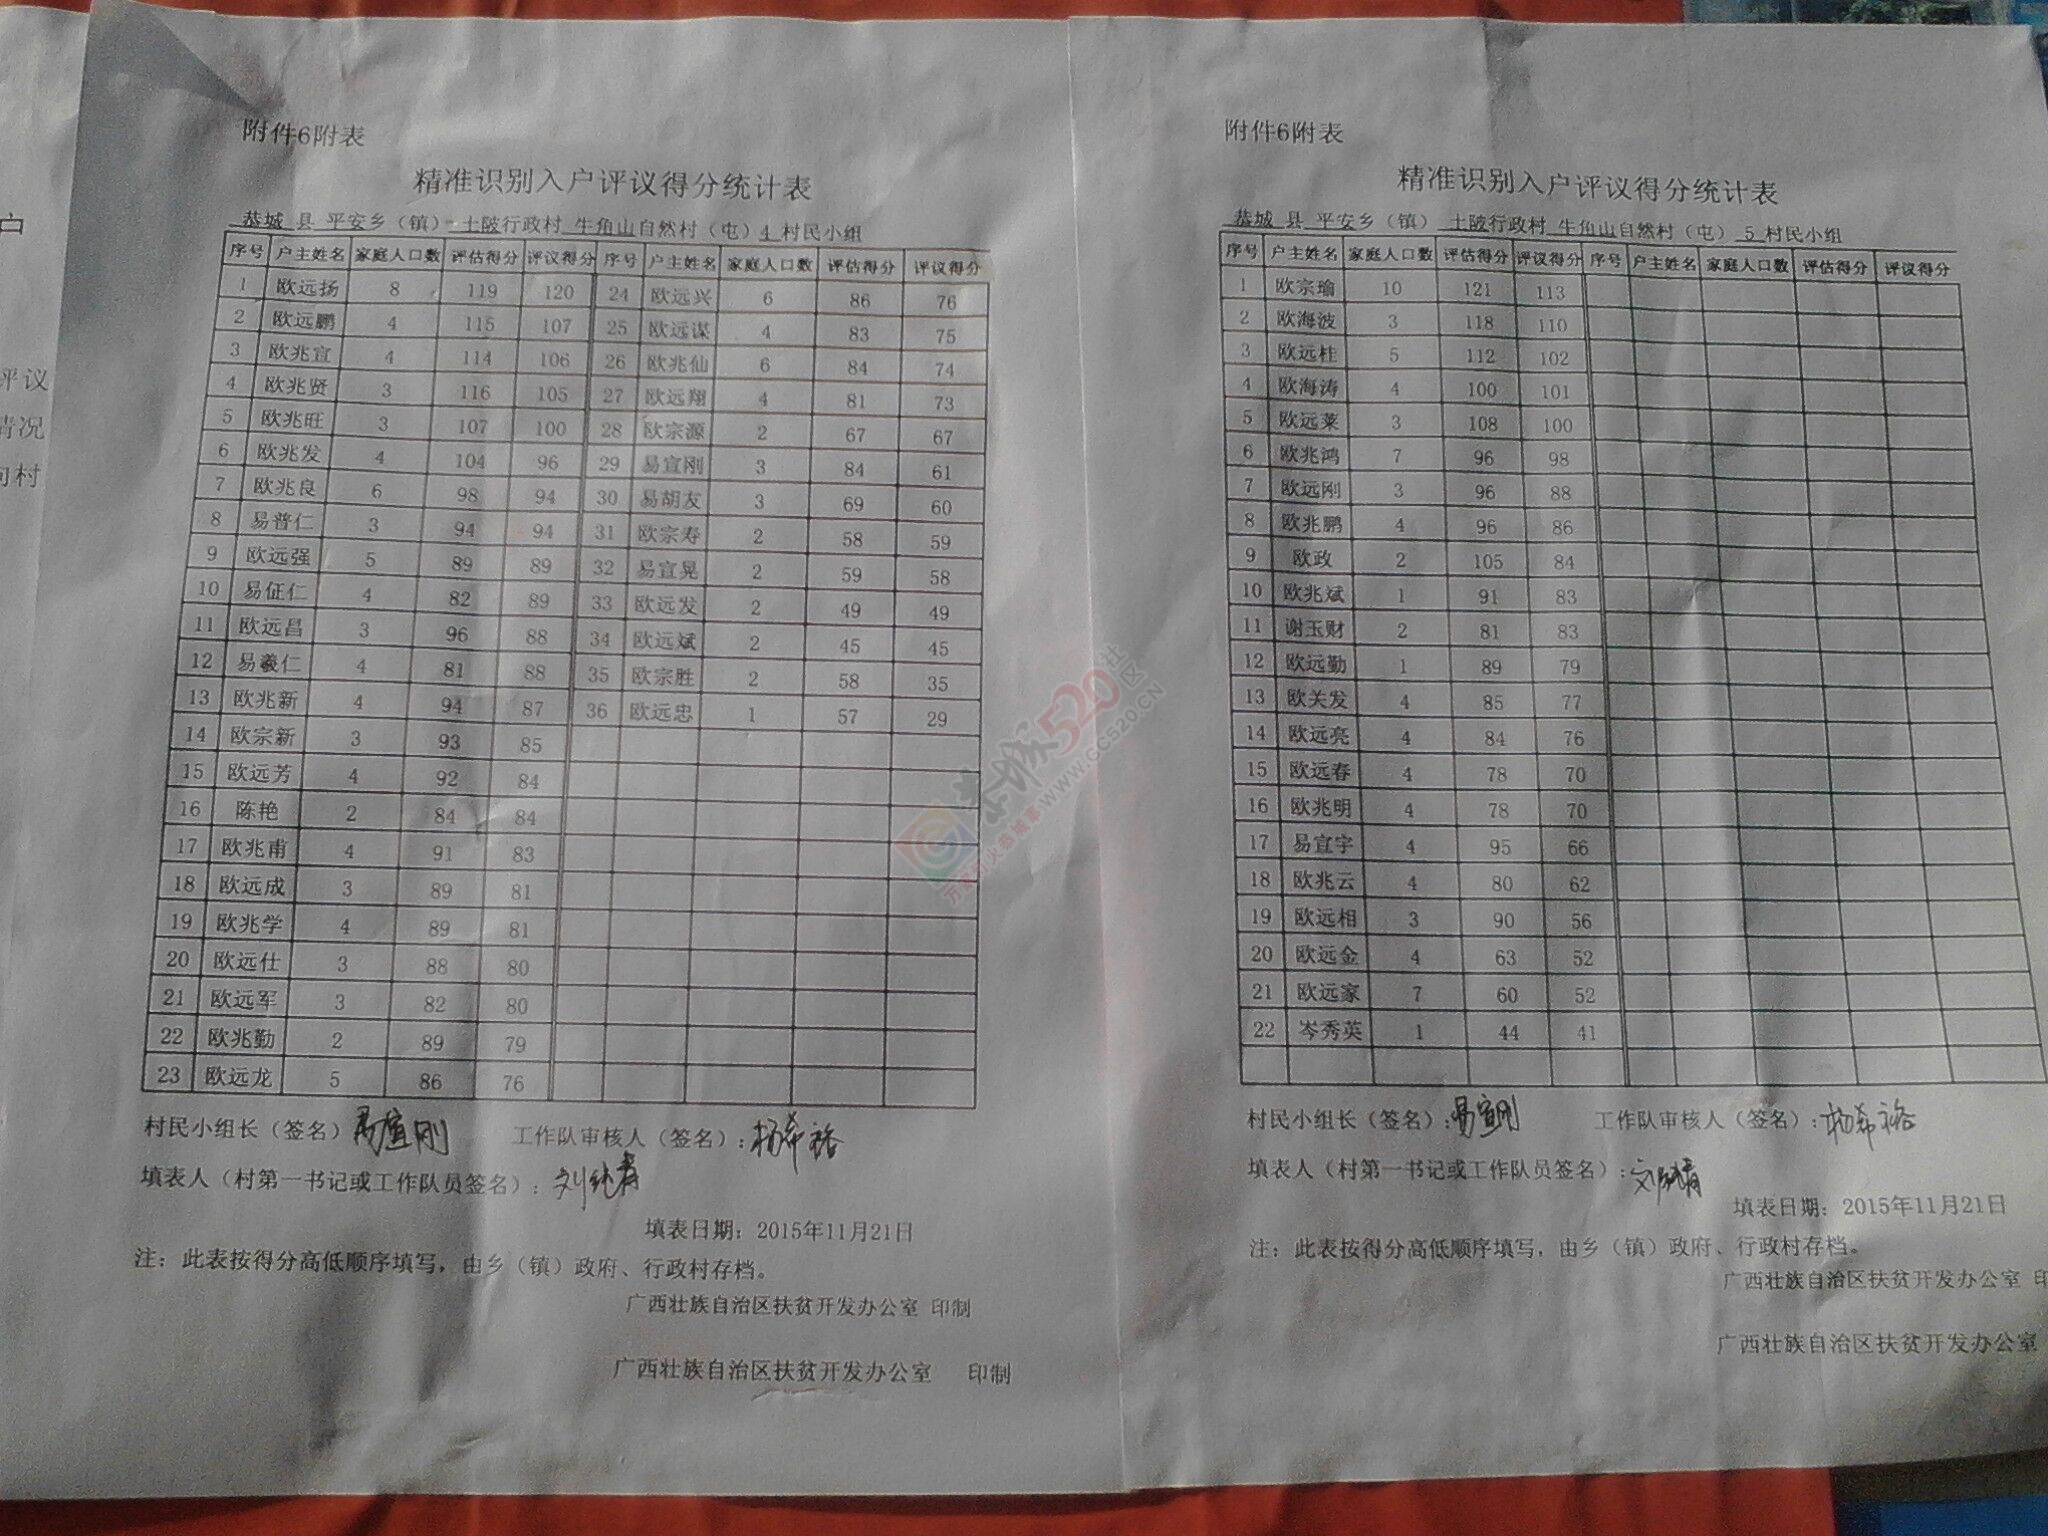 户
评议
情况
向村
附件6附表
精准识别入户评议得分统计表
恭城 县 平安乡（镇） 土陂行政村 牛角山自然村（屯）4 村民小组
序号 户主姓名 家庭人口数 评估得分 评议得分 序号 户主姓名 家庭人口数 评估得分 评议得分
1 欧远扬 8 119 120 24 欧远兴 6 86 76
2 欧远鹏 4 115 107 25 欧远谋 4 83 75
3 欧兆宣 4 114 106 26 欧兆仙 6 84 74
4 欧兆贤 3 116 105 27 欧远翔 4 81 73
5 欧兆旺 3 107 100 28 欧宗源 2 67 67
6 欧兆发 4 104 96 29 易宣刚 3 84 61
7 欧兆良 6 98 94 30 易胡友 3 69 60
8 易普仁 3 94 94 31 欧宗寿 2 58 59
9 欧远强 5 89 89 32 易宣晃 2 59 58
10 易征仁 4 82 89 33 欧远发 2 49 49
11 欧远昌 3 96 88 34 欧远斌 2 45 45
12 易羲仁 4 81 88 35 欧宗胜 2 58 35
13 欧兆新 4 94 87 36 欧远忠 1 57 29
14 欧宗新 3 93 85
15 欧远芳 4 92 84
16 陈艳 2 84 84
17 欧兆甫 4 91 83
18 欧远成 3 89 81
19 欧兆学 4 89 81
20 欧远仕 3 88 80
21 欧远军 3 82 80
22 欧兆勤 2 89 79
23 欧远龙 5 86 76
村民小组长（签名） 易宣刚 工作队审核人（签名）：杨希裕
填表人（村第一书记或工作队员签名）：刘纯青
填表日期：2015年11月21日
注：此表按得分高低顺序填写，由乡（镇）政府、行政村存档。
广西壮族自治区扶贫开发办公室 印制
广西壮族自治区扶贫开发办公室 印制
附件6附表
精准识别入户评议得分统计表
恭城 县 平安乡（镇） 土陂行政村 牛角山自然村（屯） 5 村民小组
序号 户主姓名 家庭人口数 评估得分 评议得分 序号 户主姓名 家庭人口数 评估得分 评议得分
1 欧宗瑜 10 121 113
2 欧海波 3 118 110
3 欧远桂 5 112 102
4 欧海涛 4 100 101
5 欧远莱 3 108 100
6 欧兆鸿 7 96 98
7 欧远刚 3 96 88
8 欧兆鹏 4 96 86
9 欧政 2 105 84
10 欧兆斌 1 91 83
11 谢玉财 2 81 83
12 欧远勤 1 89 79
13 欧关发 4 85 77
14 欧远亮 4 84 76
15 欧远春 4 78 70
16 欧兆明 4 78 70
17 易宣宇 4 95 66
18 欧兆云 4 80 62
19 欧远相 3 90 56
20 欧远金 4 63 52
21 欧远家 7 60 52
22 岑秀英 1 44 41
村民小组长（签名）：易宣刚 工作队审核人（签名）：杨希裕
填表人（村第一书记或工作队员签名）：刘纯青
填表日期：2015年11月21日
注：此表按得分高低顺序填写，由乡（镇）政府、行政村存档。
广西壮族自治区扶贫开发办公室 印
广西壮族自治区扶贫开发办公室
恭城520社区
万家灯火恭城事 WWW.GC520.CN